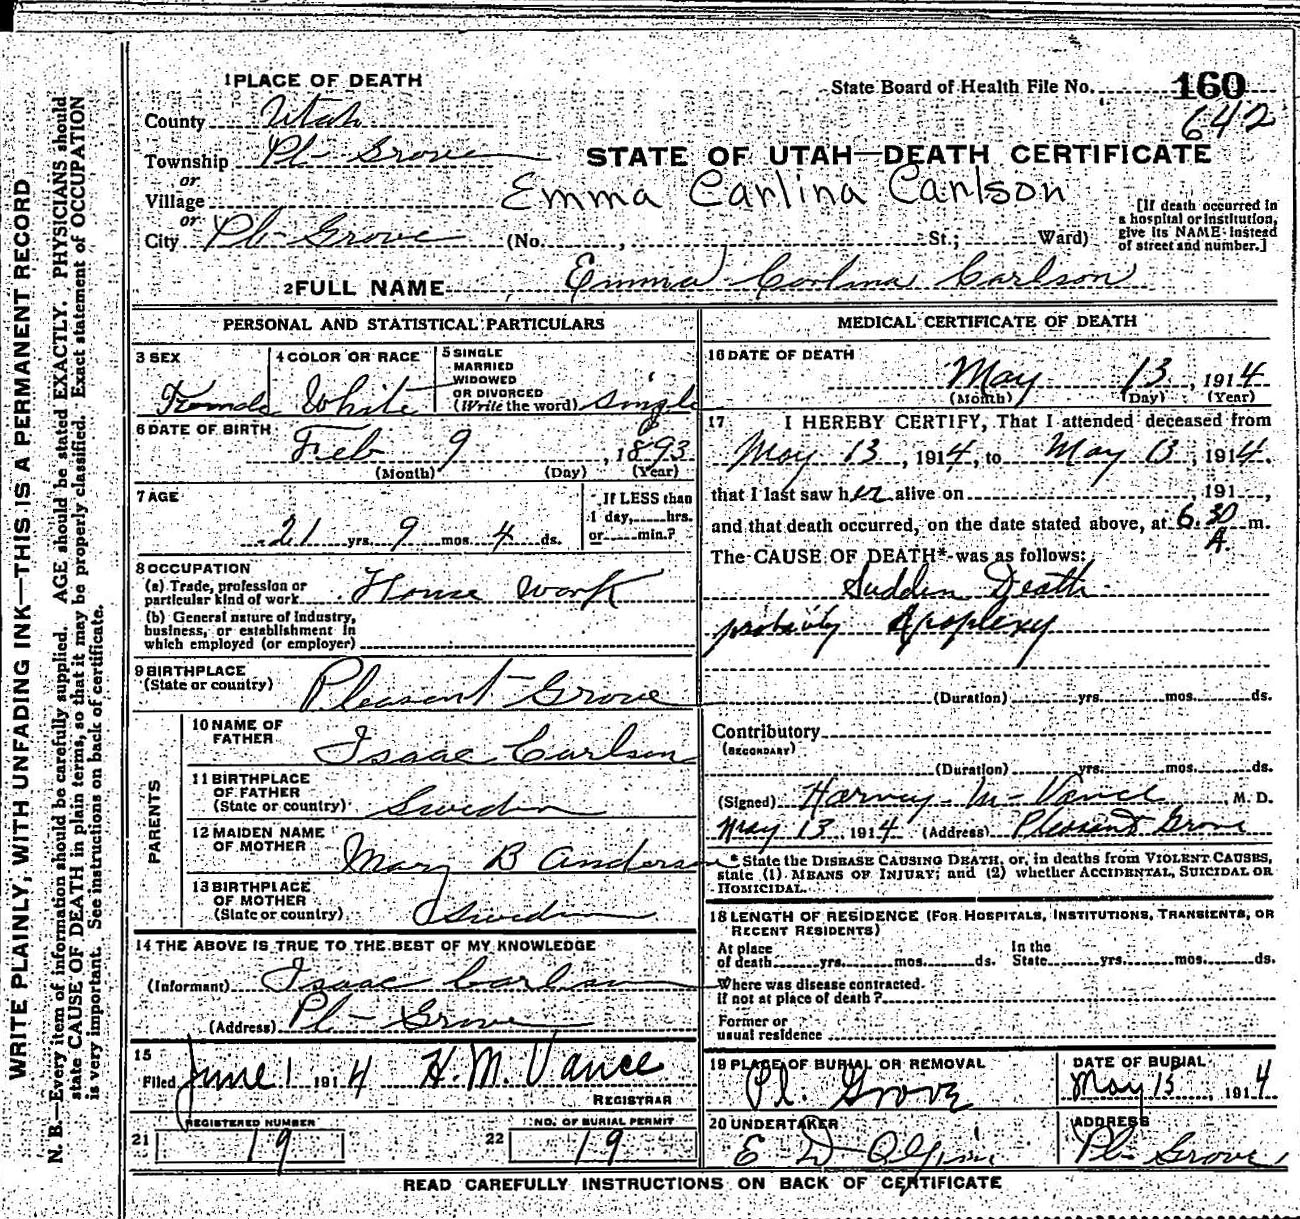 WRITE PLAINLY, WITH UNFADING INK—THIS IS A PERMANENT RECORD
N. B.—Every item of information should be carefully supplied. AGE should be stated EXACTLY. PHYSICIANS should
state CAUSE OF DEATH in plain terms, so that it may be properly classified. Exact statement of OCCUPATION
is very important. See instructions on back of certificate.
1 PLACE OF DEATH
State Board of Health File No. 160
642
County Utah
Township Pl- Grove
or
Village
or
City Pl- Grove
STATE OF UTAH—DEATH CERTIFICATE
Emma Carlina Carlson
(No. , St.; Ward)
[If death occurred in
a hospital or institution,
give its NAME instead
of street and number.]
2 FULL NAME Emma Carlson
PERSONAL AND STATISTICAL PARTICULARS
3 SEX Female
4 COLOR OR RACE White
5 SINGLE
MARRIED
WIDOWED
OR DIVORCED
(Write the word) Single
6 DATE OF BIRTH
Feb 9, 1893
(Month) (Day) (Year)
7 AGE
21 yrs. 9 mos. 4 ds.
If LESS than
1 day, hrs.
or min.?
8 OCCUPATION
(a) Trade, profession or
particular kind of work House work
(b) General nature of industry,
business, or establishment in
which employed (or employer)
9 BIRTHPLACE
(State or country) Pleasant Grove
PARENTS
10 NAME OF
FATHER Isaac Carlson
11 BIRTHPLACE
OF FATHER
(State or country) Sweden
12 MAIDEN NAME
OF MOTHER Mary B Anderson
13 BIRTHPLACE
OF MOTHER
(State or country) Sweden
14 THE ABOVE IS TRUE TO THE BEST OF MY KNOWLEDGE
(Informant) Isaac Carlson
(Address) Pl- Grove
15
Filed June 1 1914 H. M. Vance
REGISTRAR
REGISTERED NUMBER
21 19
NO. OF BURIAL PERMIT
22 19
MEDICAL CERTIFICATE OF DEATH
16 DATE OF DEATH
May 13, 1914
(Month) (Day) (Year)
17 I HEREBY CERTIFY, That I attended deceased from
May 13, 1914, to May 13, 1914.
that I last saw her alive on , 191 ,
and that death occurred, on the date stated above, at 6.30 m.
A.
The CAUSE OF DEATH* was as follows:
Sudden Death
probably Apoplexy
(Duration) yrs. mos. ds.
Contributory
(SECONDARY)
(Duration) yrs. mos. ds.
(Signed) Harvey M- Vance, M. D.
May 13 1914 (Address) Pleasant Grove
* State the DISEASE CAUSING DEATH, or, in deaths from VIOLENT CAUSES,
state (1) MEANS OF INJURY; and (2) whether ACCIDENTAL, SUICIDAL OR
HOMICIDAL.
18 LENGTH OF RESIDENCE (FOR HOSPITALS, INSTITUTIONS, TRANSIENTS, OR
RECENT RESIDENTS)
At place
of death yrs. mos. ds.
In the
State yrs. mos. ds.
Where was disease contracted.
if not at place of death?
Former or
usual residence
19 PLACE OF BURIAL OR REMOVAL
Pl. Grove
DATE OF BURIAL
May 15, 1914
20 UNDERTAKER
E D
ADDRESS
Pl- Grove
READ CAREFULLY INSTRUCTIONS ON BACK OF CERTIFICATE